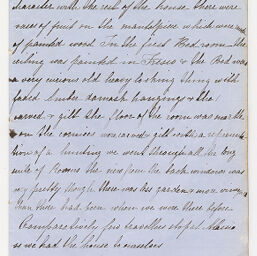 character with the rest of the house there were
vases of fruit on the mantelpiece which were
of painted wood In the first Bed room the
ceiling was painted in Fresco & the Bed was
a very curious old heavy looking thing with
faded Amber damask hangings & the
carved & gilt the floor of the room was marble
on the cornices were carved & gilt with a
tion of a hunting we went through all the long
suite of Rooms the view from the back windows was
very pretty though there was his garden & more
than there had been when we were there before
Comparatively few travellers stop at
so we had the house to ourselves